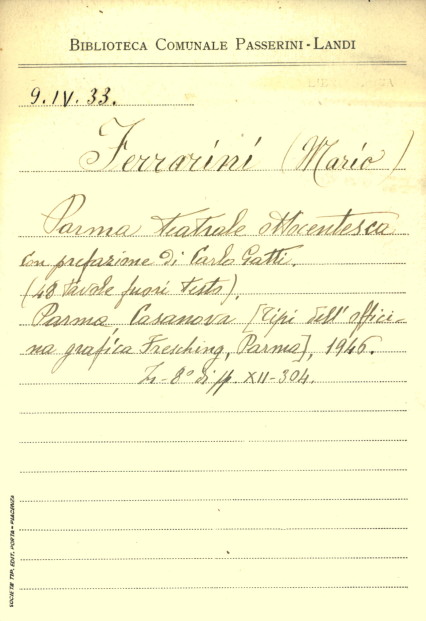 BIBLIOTECA COMUNALE PASSERINI-LANDI
9.IV.33.
Ferrarini (Mario)
Parma teatrale ottocentesca
con prefazione di Carlo Gatti.
(48 tavole fuori testo).
Parma Casanova [Tipi dell'offici-
na grafica Fresching, Parma], 1946.
In-8° di pp XII-304.
SOCIETÀ TIP. EDIT. PORTA - PIACENZA